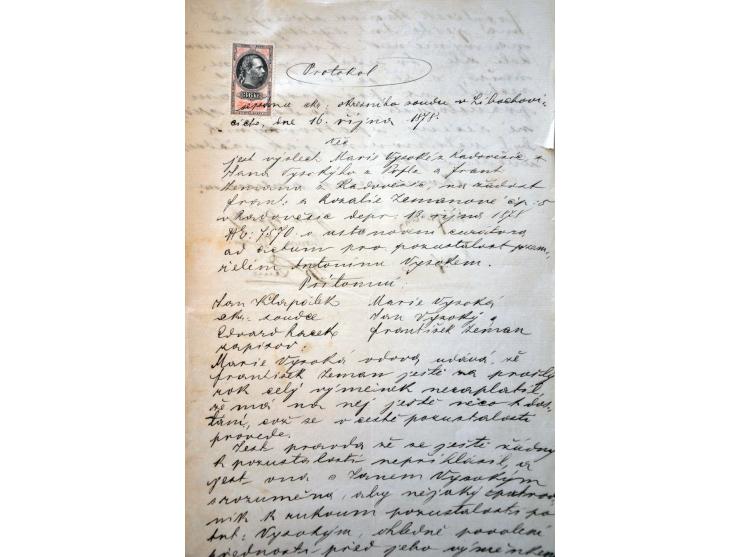 Protokol
sepsaný ckr. okresního soudu v Libochovi-
cích, dne 16. října 1878.
jest výslech Marie Vysoké z Radovesic a
Jana Vysokýho z a Frant
Zemana z Radovesic, na žádost
Frant: a Rozalie Zemanové čp: 5
v Radovesic depr. 13. října 1878
7570 o ustanovení curatora
ad actum pro pozustalost po zem-
řelém Antonínu Vysokém.
Přítomní
Jan Klapálek Marie Vysoká
ckr. soudce Jan Vysoký
Edvard František Zeman
zapisov.
Marie Vysoká vdova udává že
František Zeman ještě za prošlý
rok celý výměnek nezaplatil,
že má na něj ještě něco k dos-
tání, což se v cestě pozustalosti
provede.
Jest pravda že se ještě žádný
k pozustalosti nepřihlásil, a
jest ona s Janem Vysokým
srozuměna, aby nějaký opatrov-
ník k rukoum pozustalosti po
Ant: Vysokým, ohledně povolení
přednosti před jeho výměnkem